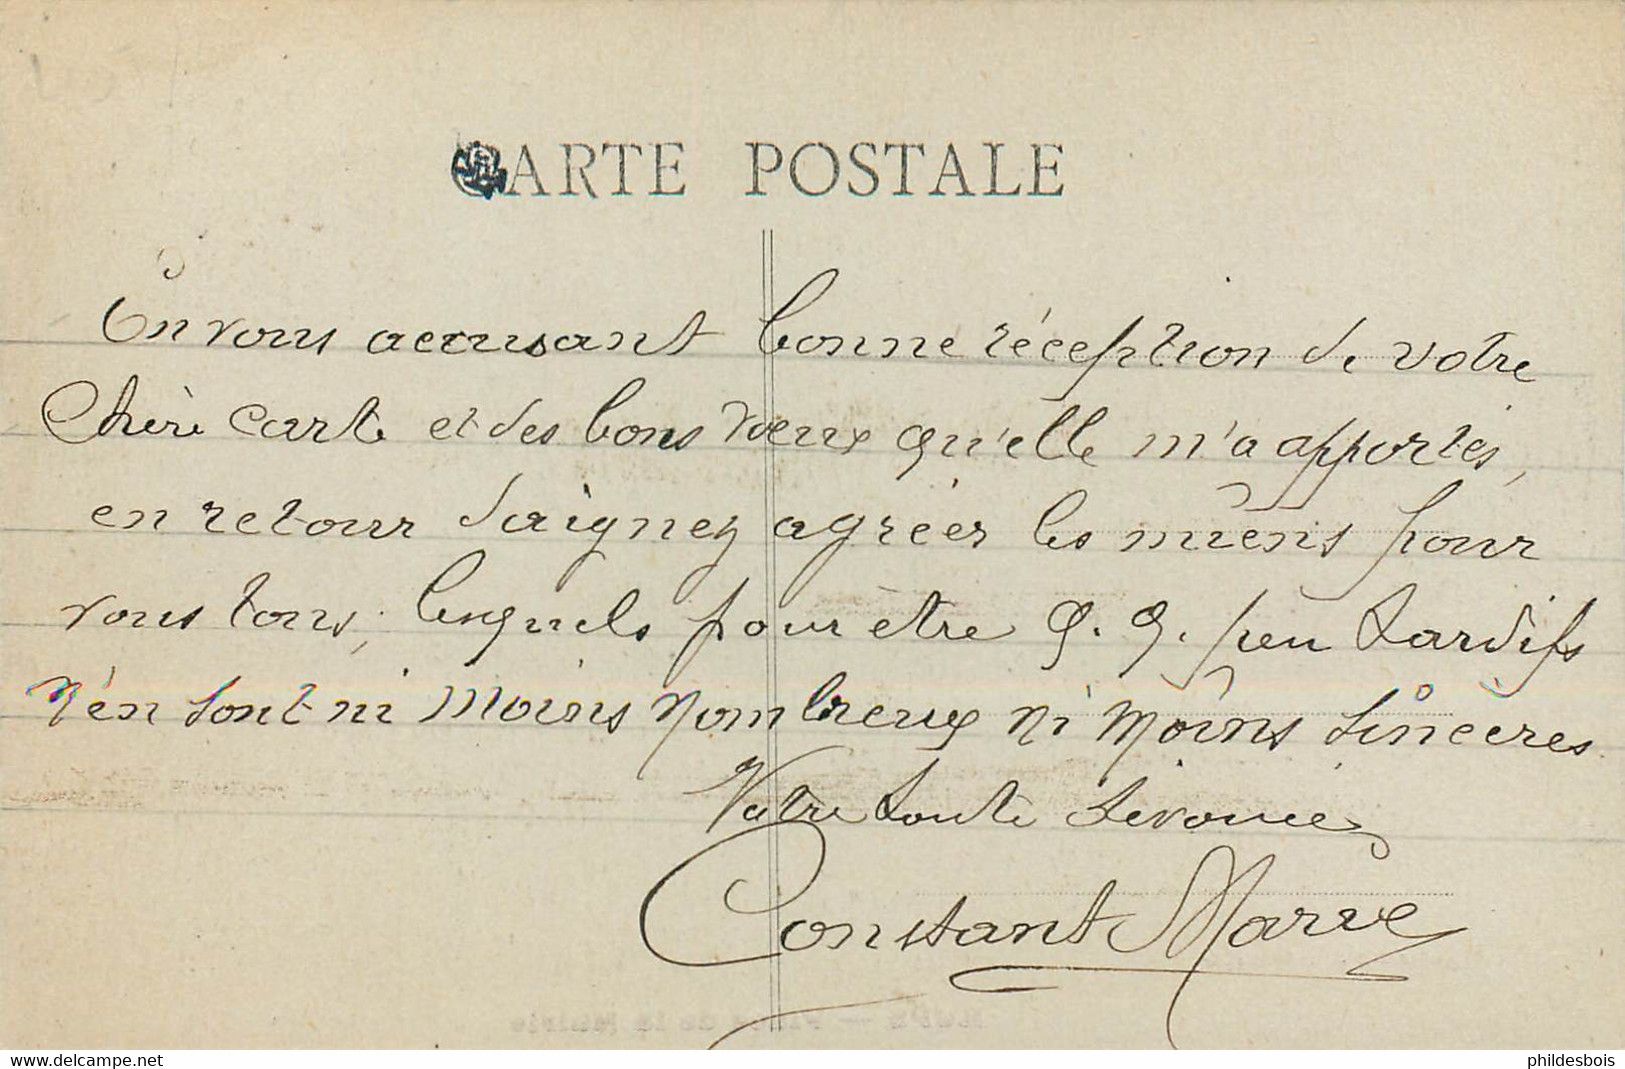 CARTE POSTALE
En vous accusant bonne réception de votre
Chère carte et des bons vœux qu'elle m'a apportés,
en retour daignez agréer les miens pour
vous tous, lesquels pour être q. q. peu tardifs
n'en sont ni moins nombreux ni moins sincères
Votre toute dévouée
Constant Marie
phildesbois